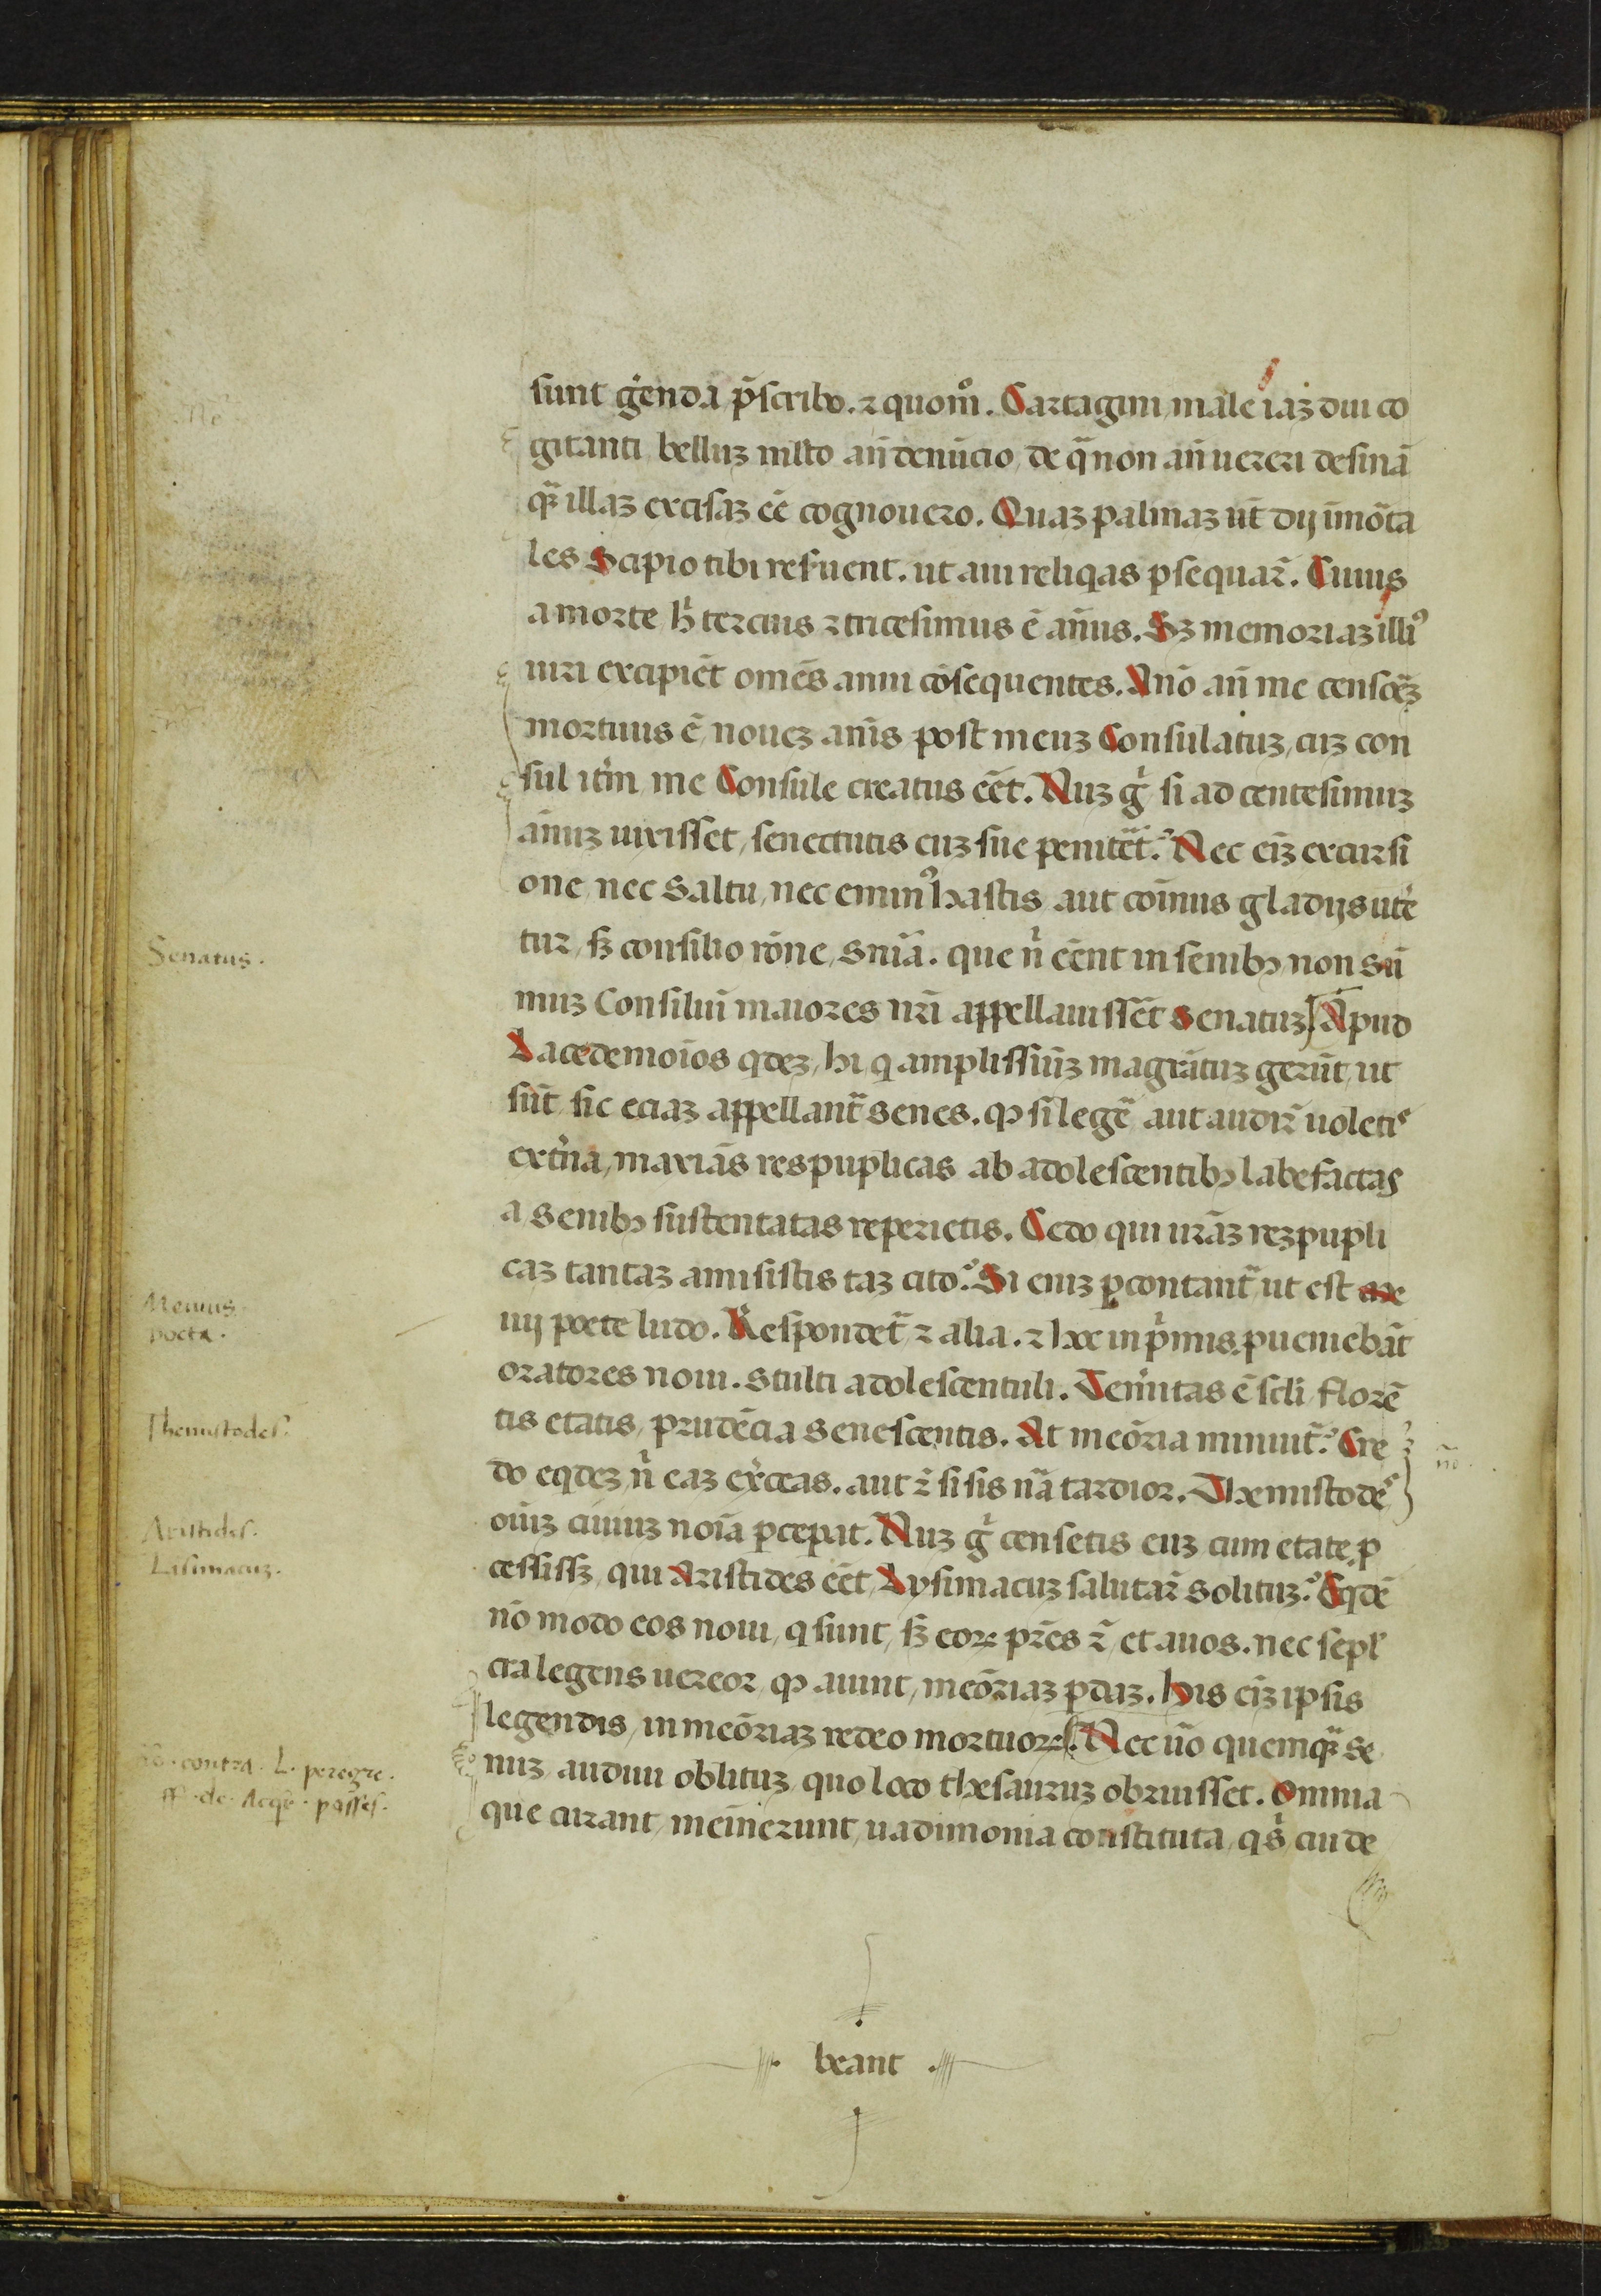 sunt gẽenda p̃scribo. ⁊ quom̊. Cartagini male iaꝫ diu co
gitanti belluꝫ ml̃to an̄ denūcio, de qᷓ non an̄ uereri desinā
qᷓꝫ illaꝫ excisaꝫ eē cognouero. Quaꝫ palmaꝫ ut̄ dij īmōta
les Scipio tibi reſuent. ut aui reliqas ꝑsequar̄. Cuius
a morte h̊ tercius ⁊ tricesimus ē an̄us. Sꝫ memoriaꝫ illiꝰ
uiri excipiēt om̄es anni cōsequentes. Anō an̄ me censoꝝ
mortuus ē, noueꝫ an̄is post meuꝫ Consulatuꝫ, cuꝫ con
sul itm̄ me Consule creatus eēt. Nuꝫ gͥ si ad centesimuꝫ
an̄uꝫ uixisset, senectutis euꝫ sue penitēt̃.ˀ Nec eīꝫ excursi
one, nec saltu, nec eminꝰ hastis aut coīnus gladijs utē
tur, sꝫ consilio rōne, snīa. que nͥ eēnt in senibꝫ non sū
muꝫ Consiliū maiores nr̄i appellauissēt senatuꝫ. Apud
Lacedemoīos qdeꝫ, hi q amplissiūꝫ magrātuꝫ gerūt, ut
sūt, sic eciaꝫ appellant̃ senes. ꝙ si legē aut audir̄ uoletis
extͥna, maxīas respuplicas ab adolescentibꝫ labefactas
a senibꝫ sustentatas reperietis. Cedo qui ur̄aꝫ rezpupli
caꝫ tantaꝫ amisistis taꝫ cito.ˀ Si eniꝫ ꝑcontant̃ ut est ne
uij poete ludo. Respondet̃ ⁊ alia. ⁊ hec in pͥmis, ꝓueniebāt
oratores noui. stulti adolescentuli. Temͥitas ē scͥli florē
tis etatis, prudēcia senescentis. At meōria minuit̃.ˀ Cre
do eqdeꝫ, nͥ eaꝫ exͬceas. aut ⁊̄ si sis nā tardior. Themistodēˢ
oīuꝫ ciuiuꝫ noīa ꝑceꝑat. Nuꝫ gͥ censetis euꝫ cum etate ꝓ
cessissꝫ, qui Aristides eēt, Lysimacuꝫ salutar̄ solituꝫ.ˀ Eqdē
nō modo eos noui, q sunt, sꝫ eoꝝ pr̄es ⁊̄, et auos. nec sepl̾
cra legens uereor, ꝙ aiunt, meōriaꝫ ꝑdaꝫ. His eīꝫ ipsis
legendis, in meōriaꝫ redeo mortuoꝝ. Nec uō quemqᷓꝫ se
nuꝫ audiui oblituꝫ, quo loco thesauruꝫ obruisset. Omnia
que curant, meīnerunt, uadimonia constituta, qs̾ cui de
beant
Senatus.
Neuius.
poeta.
Themistodes.
nō.
Aristides.
Lisimacuꝫ.
contra. L. peregre.
ff. de. Acqͥ. posses.